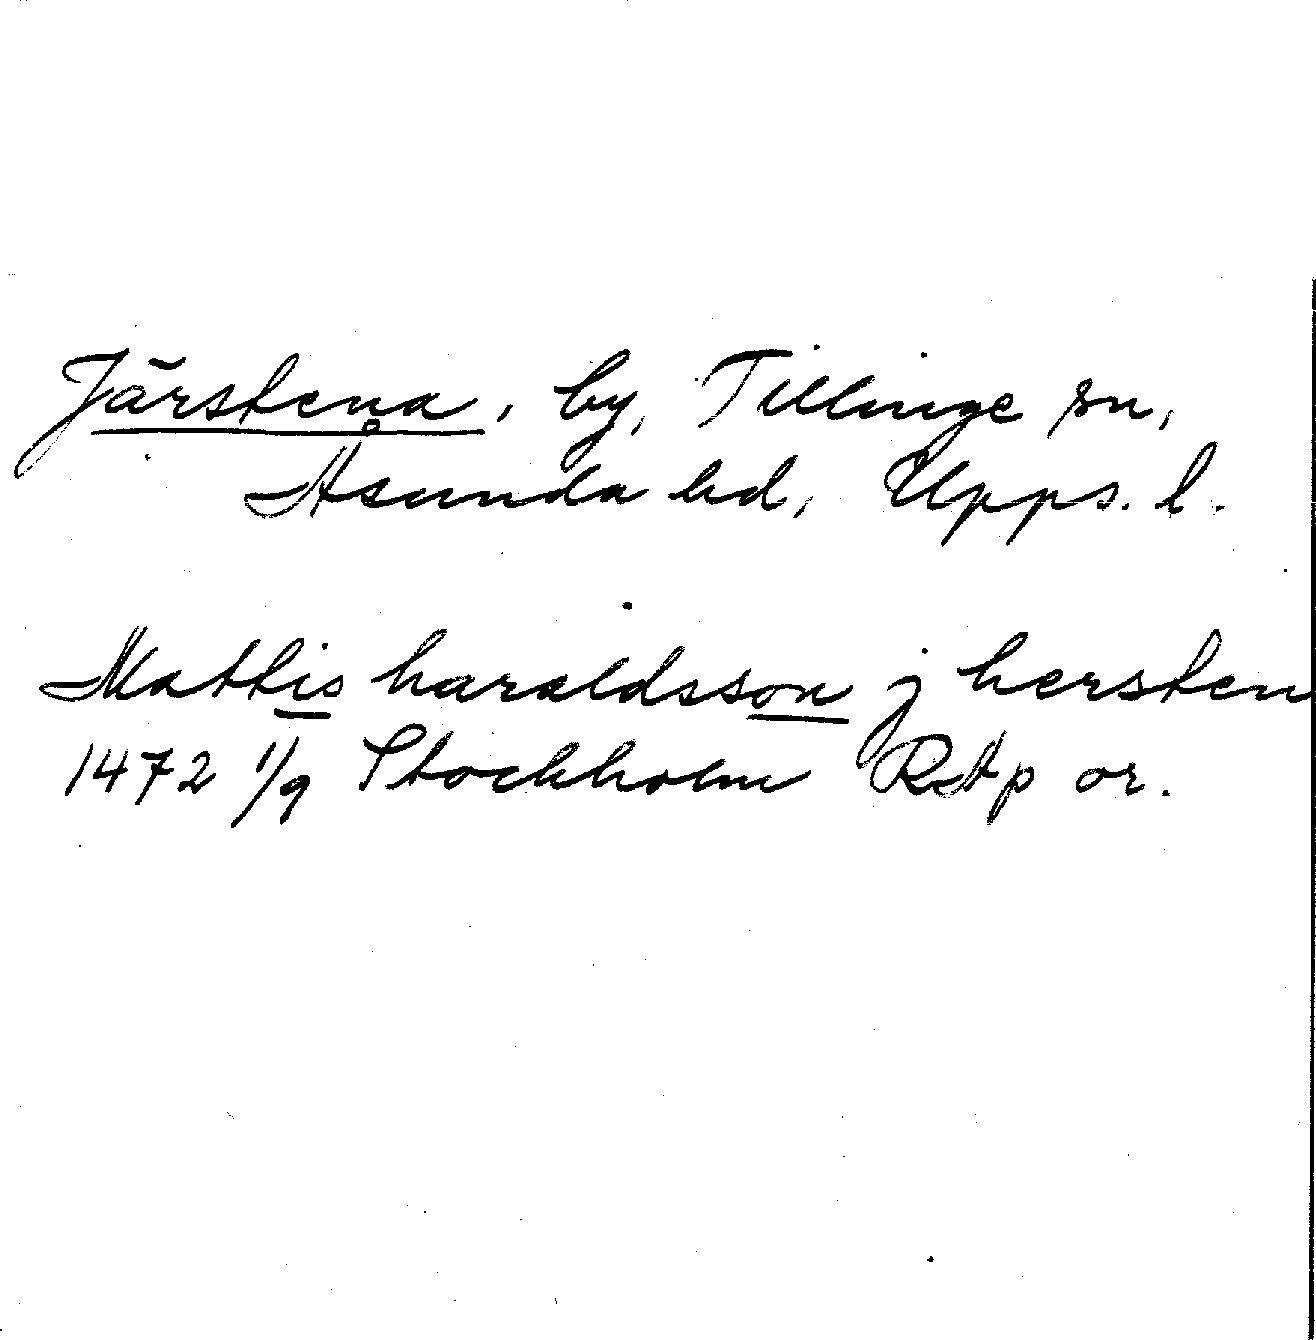 Järstena, by, Tillinge sn,
Åsunda hd, Upps. l.
Mattis haraldsson j hersten
1472 1/9 Stockholm RAp or.